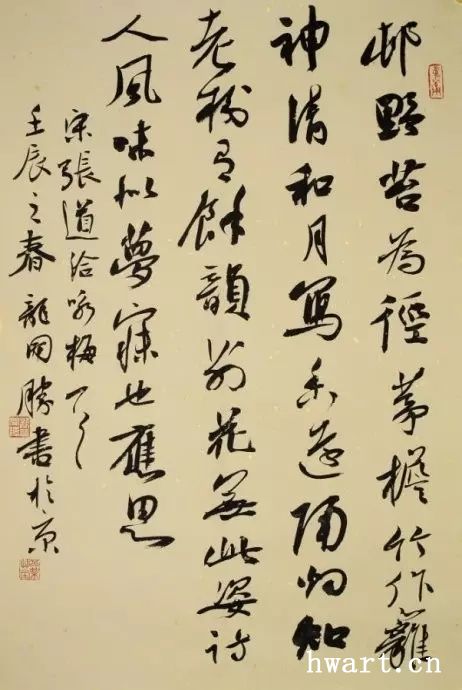 邨野苔為徑茅檐竹作籬
神清和月寫香遠隔烟知
老樹有餘韻別花無此姿詩
人風味似夢寐也應思
宋張道洽咏梅
壬辰之春龍開勝書於京
hwart.cn